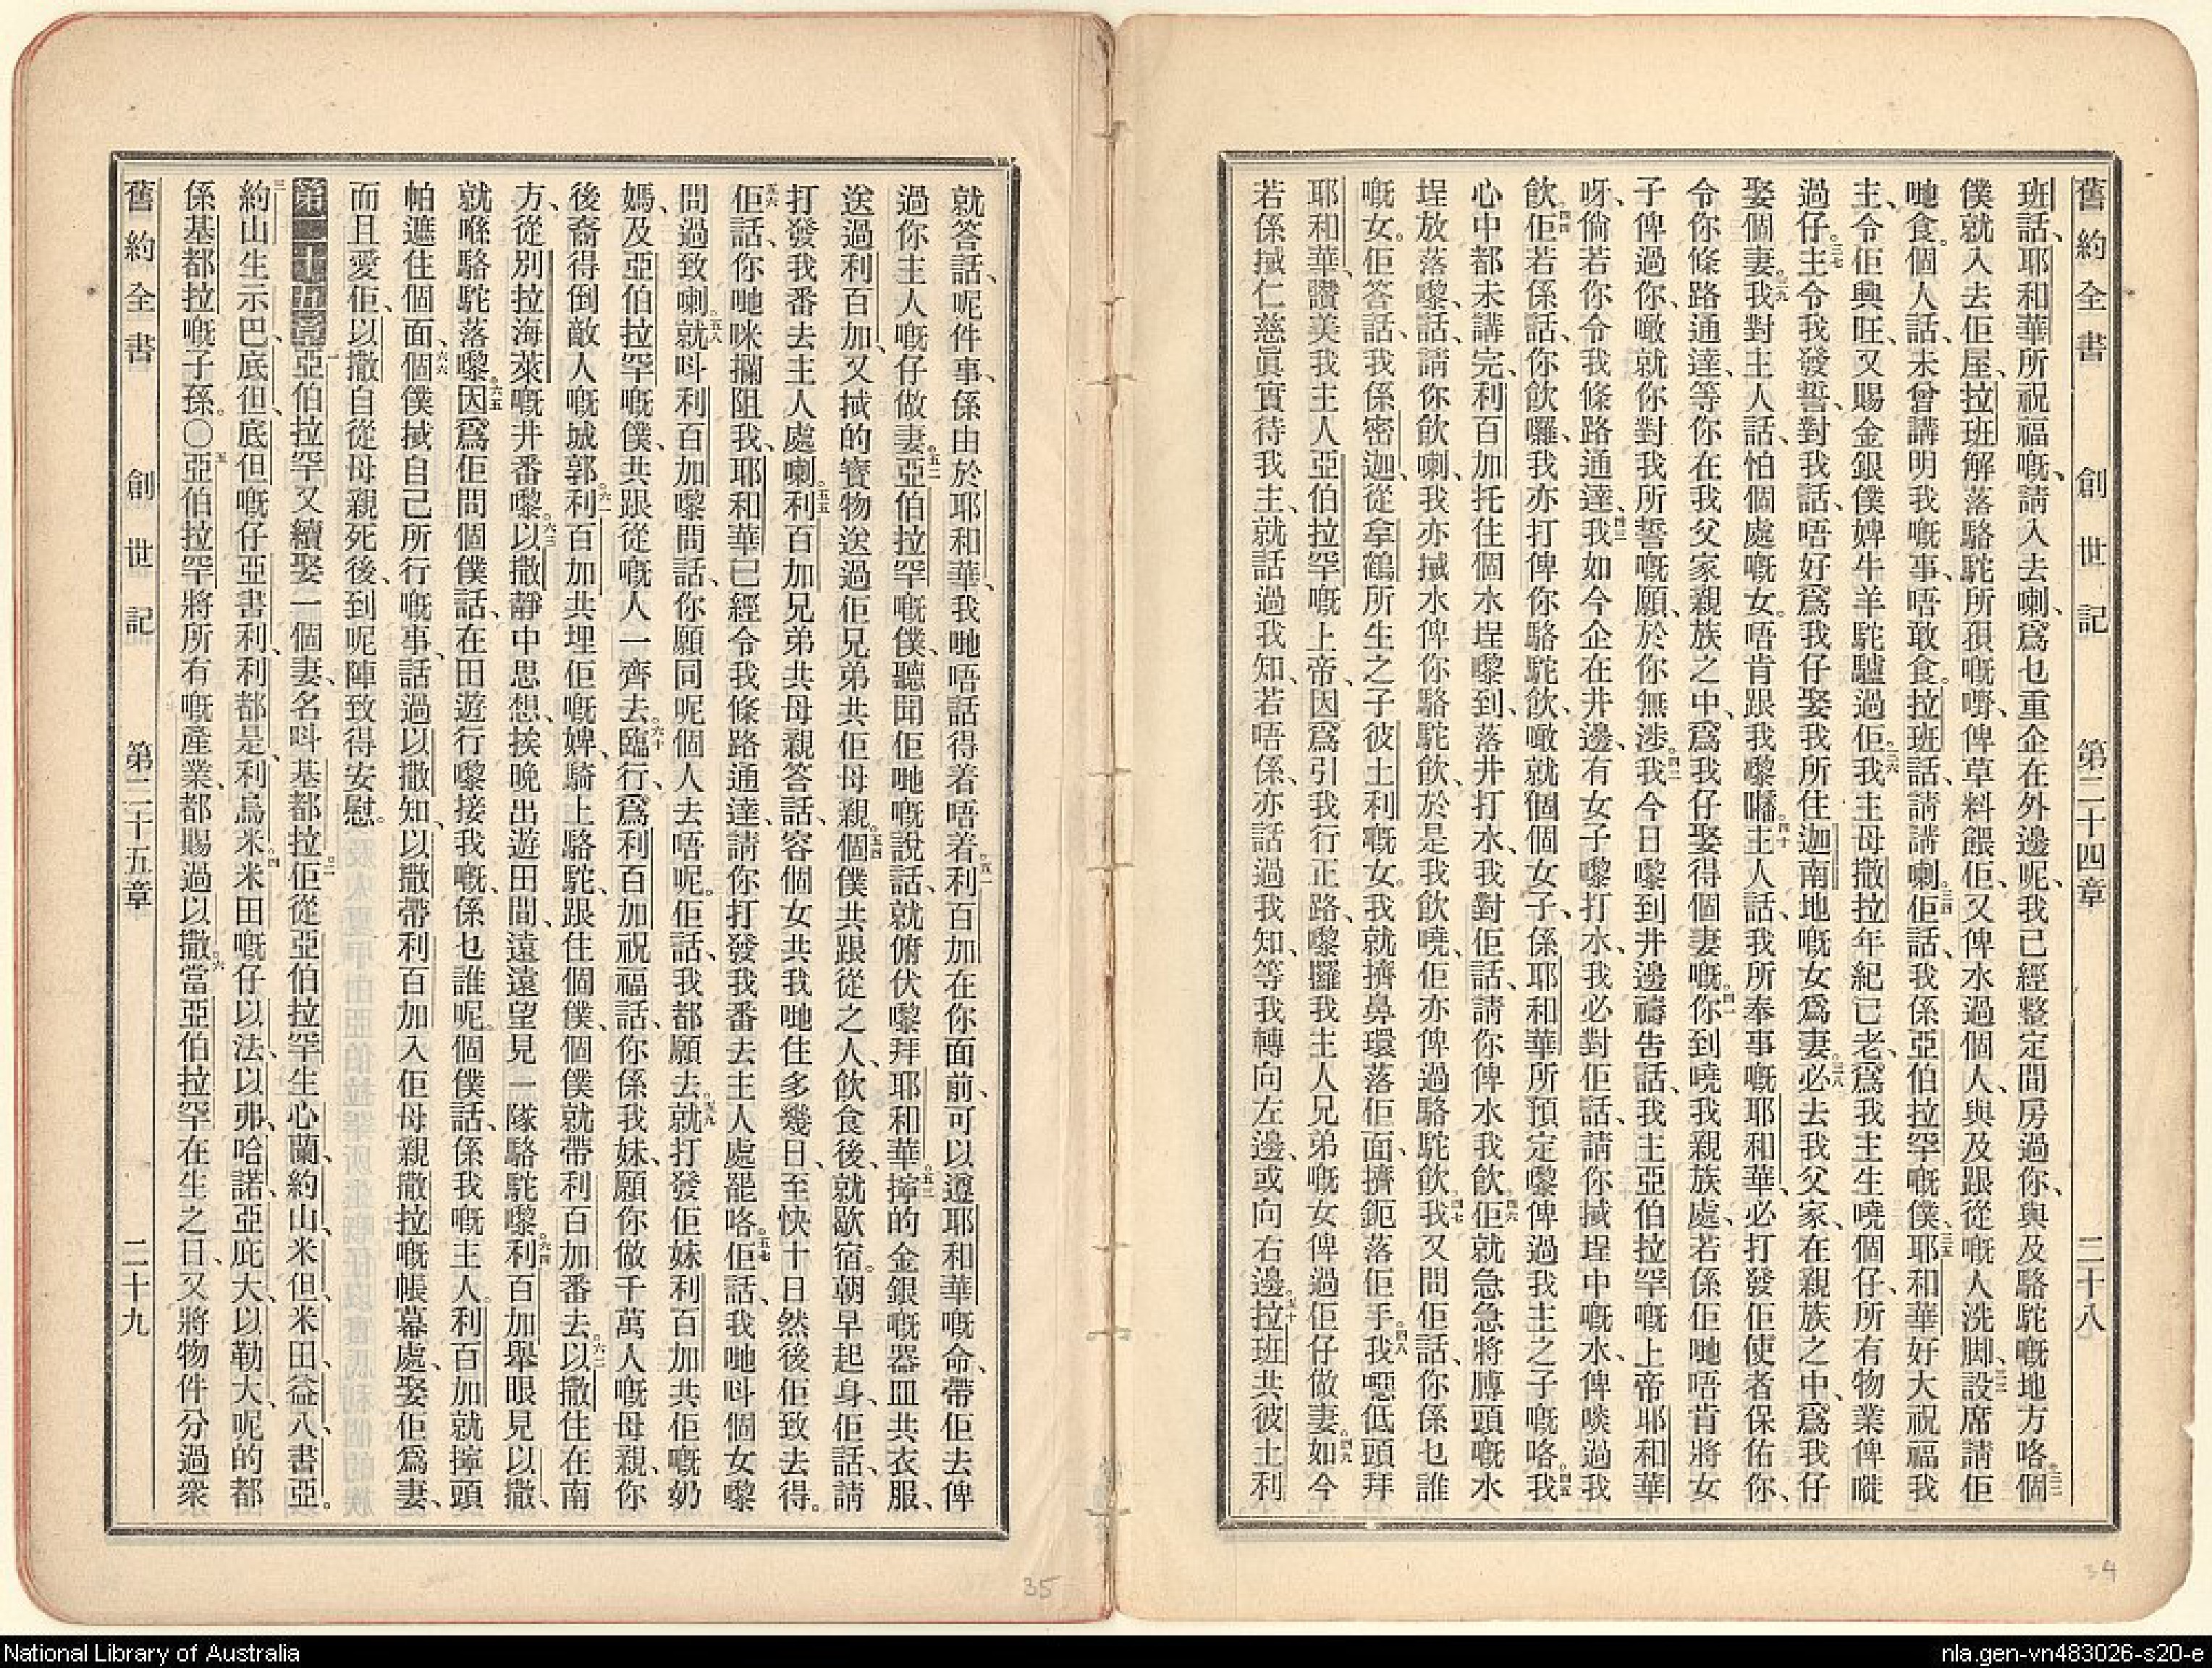 舊約全書 創世記 第二十四章 二十八
班話、耶和華所祝福嘅、請入去喇、爲乜重企在外邊呢、我已經整定間房過你、與及駱駝嘅地方咯。三二個
僕就入去佢屋、拉班解落駱駝所孭嘅嘢、俾草料餵佢、又俾水過個人、與及跟從嘅人洗脚、三三設席請佢
哋食。個人話、未曾講明我嘅事、唔敢食。拉班話、請講喇。三四佢話、我係亞伯拉罕嘅僕、三五耶和華好大祝福我
主、令佢興旺、又賜金銀僕婢牛羊駝驢過佢。三六我主母撒拉年紀已老、爲我主生嘵個仔、所有物業俾嘥
過仔。三七主令我發誓、對我話、唔好爲我仔娶我所住迦南地嘅女爲妻。三八必去我父家、在親族之中、爲我仔
娶個妻。三九我對主人話、怕個處嘅女。唔肯跟我嚟𡃶。四十主人話、我所奉事嘅耶和華、必打發佢使者保佑你、
令你條路通達、等你在我父家親族之中、爲我仔娶得個妻嘅。四一你到嘵我親族處、若係佢哋唔肯將女
子俾過你、噉就你對我所誓嘅願、於你無涉。四二我今日嚟到井邊禱告話、我主亞伯拉罕嘅上帝耶和華
呀、倘若你令我條路通達、四三我如今企在井邊、有女子嚟打水、我必對佢話、請你搣埕中嘅水、俾啖過我
飲。四四佢若係話、你飲囉、我亦打俾你駱駝飲、噉就個個女子、係耶和華所預定嚟俾過我主之子嘅咯。四五我
心中都未講完、利百加托住個水埕嚟到、落井打水、我對佢話、請你俾水我飲。四六佢就急急將膊頭嘅水
埕放落嚟、話、請你飲喇、我亦搣水俾你駱駝飲、於是我飲嘵、佢亦俾過駱駝飲。四七我又問佢話、你係乜誰
嘅女。佢答話、我係密迦、從拿鶴所生之子彼土利嘅女。我就擠鼻環落佢面、擠鈪落佢手。四八我噁低頭拜
耶和華、讚美我主人亞伯拉罕嘅上帝、因爲引我行正路、嚟攞我主人兄弟嘅女俾過佢仔做妻。四九如今
若係搣仁慈眞實待我主、就話過我知、若唔係、亦話過我知、等我轉向左邊、或向右邊。五十拉班共彼土利
就答話、呢件事、係由於耶和華、我哋唔話得着唔着。五一利百加在你面前、可以遵耶和華嘅命、帶佢去俾
過你主人嘅仔做妻。五二亞伯拉罕嘅僕、聽聞佢哋嘅說話、就俯伏嚟拜耶和華。五三擰的金銀嘅器皿共衣服、
送過利百加、又搣的寶物送過佢兄弟共佢母親。五四個僕共跟從之人、飲食後、就歇宿。朝早起身、佢話、請
打發我番去主人處喇。五五利百加兄弟共母親答話、容個女共我哋住多幾日、至快十日然後佢致去得。
五六佢話、你哋咪攔阻我、耶和華已經令我條路通達、請你打發我番去主人處罷咯。五七佢話、我哋呌個女嚟
問過致喇。五八就呌利百加嚟問話、你願同呢個人去唔呢。佢話、我都願去。五九就打發佢妹利百加共佢嘅奶
媽、及亞伯拉罕嘅僕、共跟從嘅人一齊去。六十臨行、爲利百加祝福話、你係我妹、願你做千萬人嘅母親、你
後裔得倒敵人嘅城郭。六一利百加共埋佢嘅婢、騎上駱駝、跟住個僕、個僕就帶利百加番去。六二以撒住在南
方、從別拉海萊嘅井番嚟。六三以撒靜中思想、挨晚出遊田間、遠遠望見一隊駱駝嚟。六四利百加舉眼見以撒、
就喺駱駝落嚟。六五因爲佢問個僕話、在田遊行嚟接我嘅、係乜誰呢。個僕話、係我嘅主人。利百加就擰頭
帕遮住個面、六六個僕搣自己所行嘅事、話過以撒知、以撒帶利百加入佢母親撒拉嘅帳幕處、娶佢爲妻、
而且愛佢、以撒自從母親死後、到呢陣致得安慰。
第二十五章 一亞伯拉罕又續娶一個妻、名呌基都拉。二佢從亞伯拉罕生心蘭、約山、米但、米田、益八、書亞。
三約山生示巴、底但、底但嘅仔亞書利、利都是、利烏米。四米田嘅仔以法、以弗、哈諾、亞庇大、以勒大、呢的都
係基都拉嘅子孫。〇五亞伯拉罕將所有嘅產業、都賜過以撒。六當亞伯拉罕在生之日、又將物件分過衆
舊約全書 創世記 第二十五章 二十九
34
35
National Library of Australia
nla.gen-vn483026-s20-e